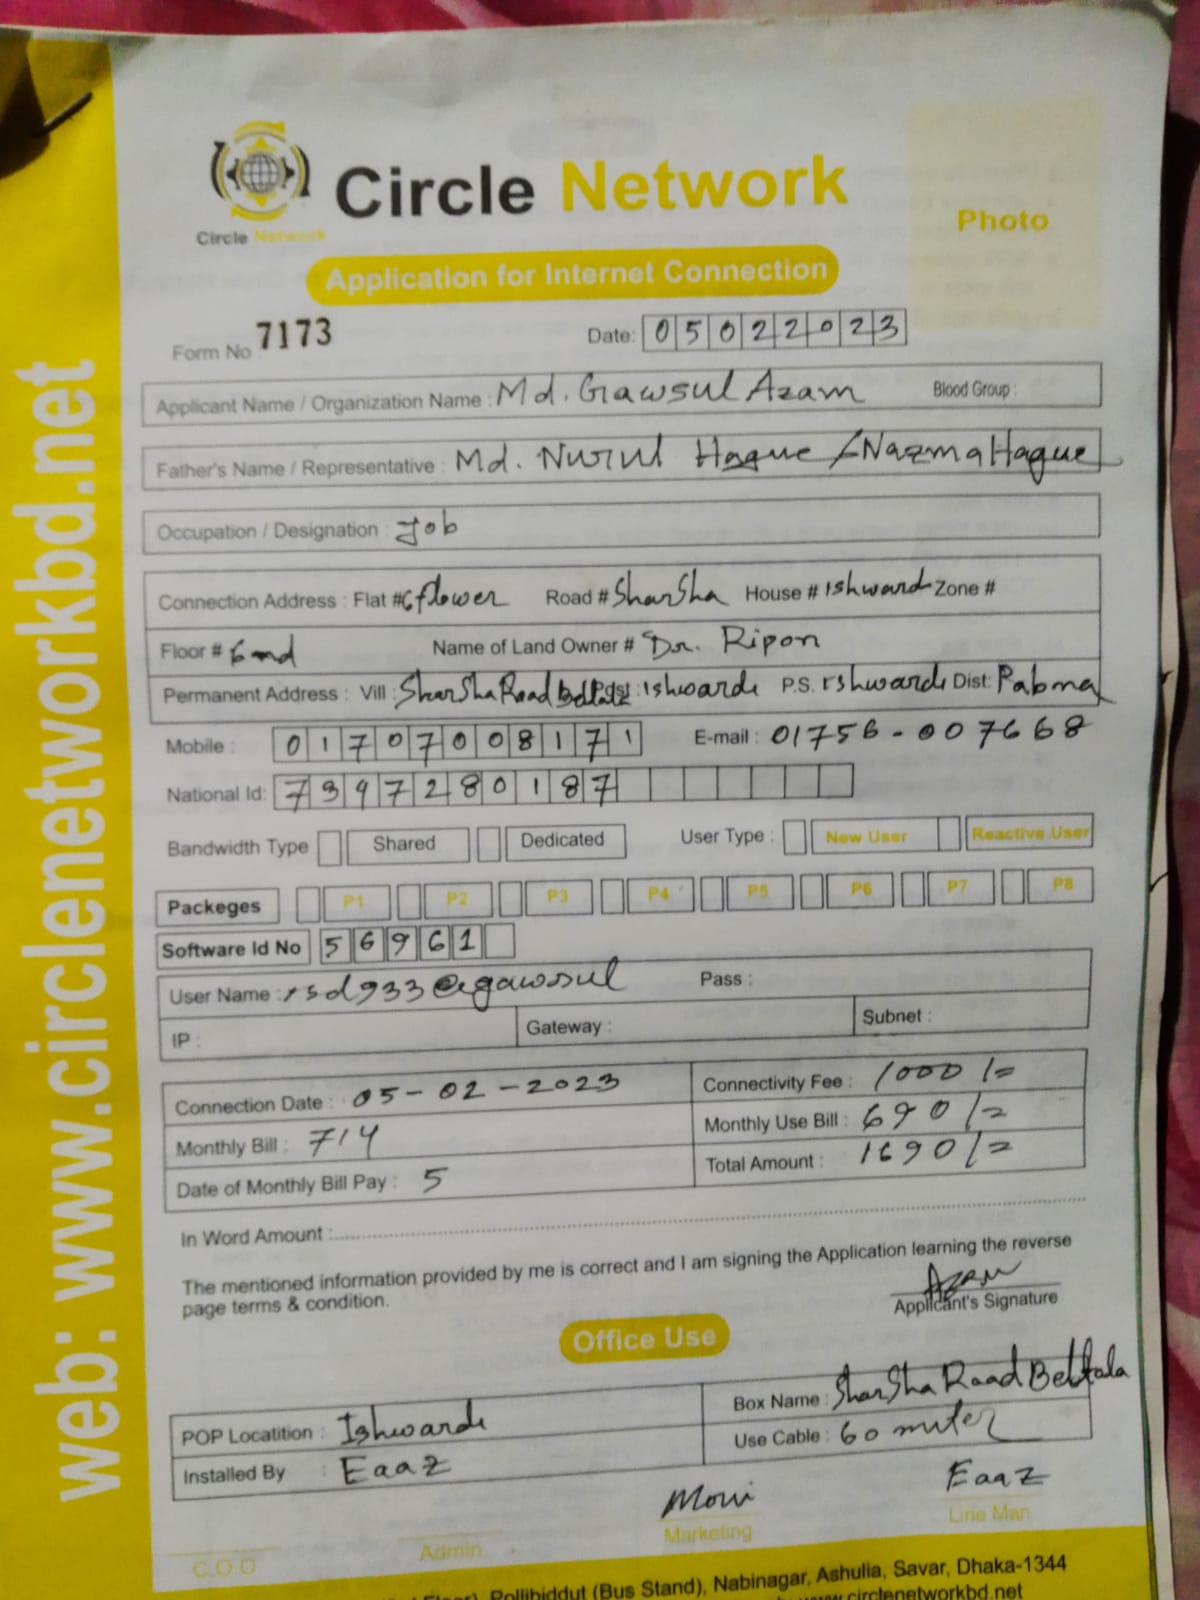 web: www.circlenetworkbd.net
Circle Network
Circle Network
Photo
Application for Internet Connection
Form No 7173 Date: 05022023
Applicant Name / Organization Name : Md. Gawsul Azam Blood Group :
Father's Name / Representative : Md. Nurul Haque / Nazma Haque
Occupation / Designation : Job
Connection Address : Flat # flower Road # Sharsha House # Ishwardi Zone #
Floor # Name of Land Owner # Dr. Ripon
Permanent Address : Vill : Sharsha Road Ishwardi P.S. Ishwardi Dist: Pabna
Mobile : 01707008171 E-mail : 01756-007668
National Id: 7397280187
Bandwidth Type Shared Dedicated User Type : New User Reactive User
Packeges P1 P2 P3 P4 P5 P6 P7 P8
Software Id No 56961
User Name : rsd933@gawsul Pass :
IP : Gateway : Subnet :
Connection Date : 05-02-2023 Connectivity Fee : 1000/=
Monthly Bill : 714 Monthly Use Bill : 690/=
Date of Monthly Bill Pay : 5 Total Amount : 1690/=
In Word Amount :
The mentioned information provided by me is correct and I am signing the Application learning the reverse
page terms & condition.
Azam
Applicant's Signature
Office Use
POP Locatition : Ishwardi Box Name : Sharsha Road Beltala
Installed By : Eaaz Use Cable : 60 miter
Moni Eaaz
C.O.O Admin Marketing Line Man
Pollibiddut (Bus Stand), Nabinagar, Ashulia, Savar, Dhaka-1344
www.circlenetworkbd.net